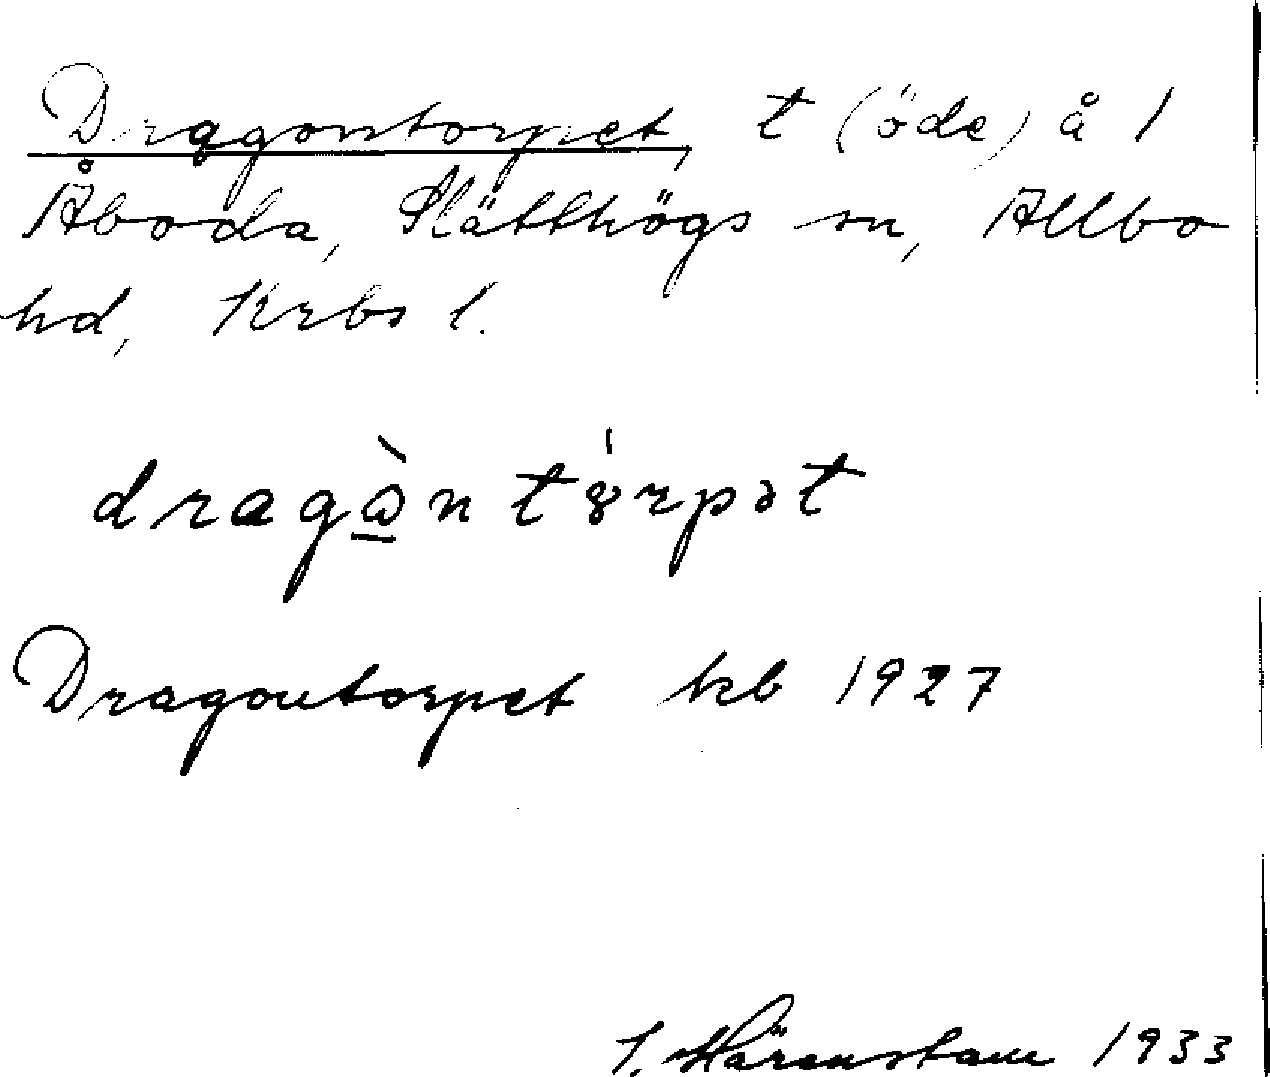 Dragontorpet, t (öde) å 1
Åboda, Slätthögs sn, Allbo
hd, Krbs l.
dragὼn tȣ́rpət
Dragontorpet kb 1927
1933